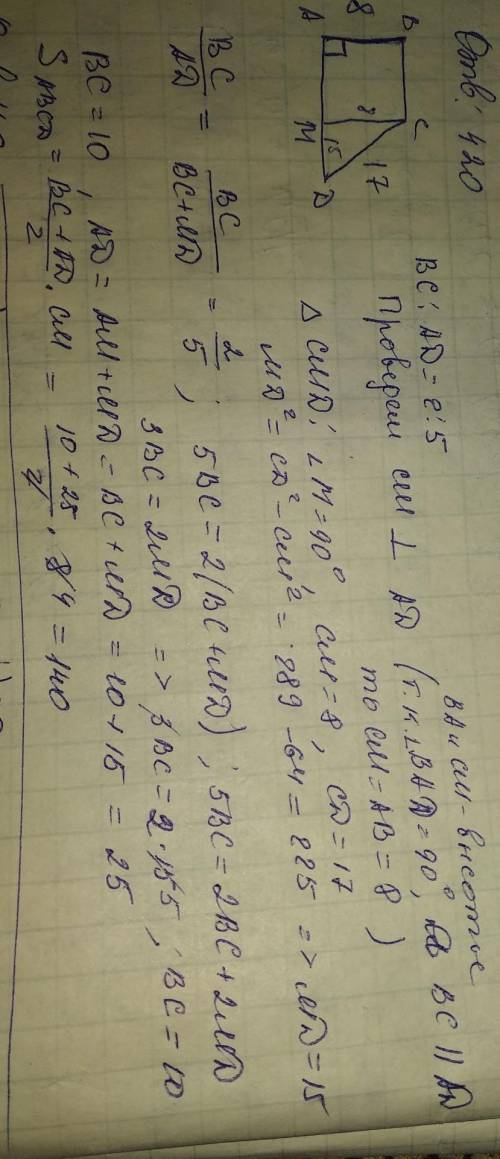 Отв: 420
B
C
A
8
8
15
17
M
D
BC : AD = 2:5
BA и CM - высоты
Проведем CM ⊥ AD (т.к ∠BAD=90°, BC || AD
то CM = AB = 8 )
△ CMD: ∠M = 90°, CM = 8, CD = 17
MD² = CD² - CM² = 289 - 64 = 225 => MD = 15
BC/AD = BC/BC+MD = 2/5 ; 5BC = 2(BC+MD) ; 5BC = 2BC + 2MD
3BC = 2MD => 3BC = 2·15 5 ; BC = 10
BC = 10 , AD = AM+MD = BC + MD = 10 + 15 = 25
S ABCD = BC + AD/2 · CM = 10 + 25/2 · 8 4 = 140